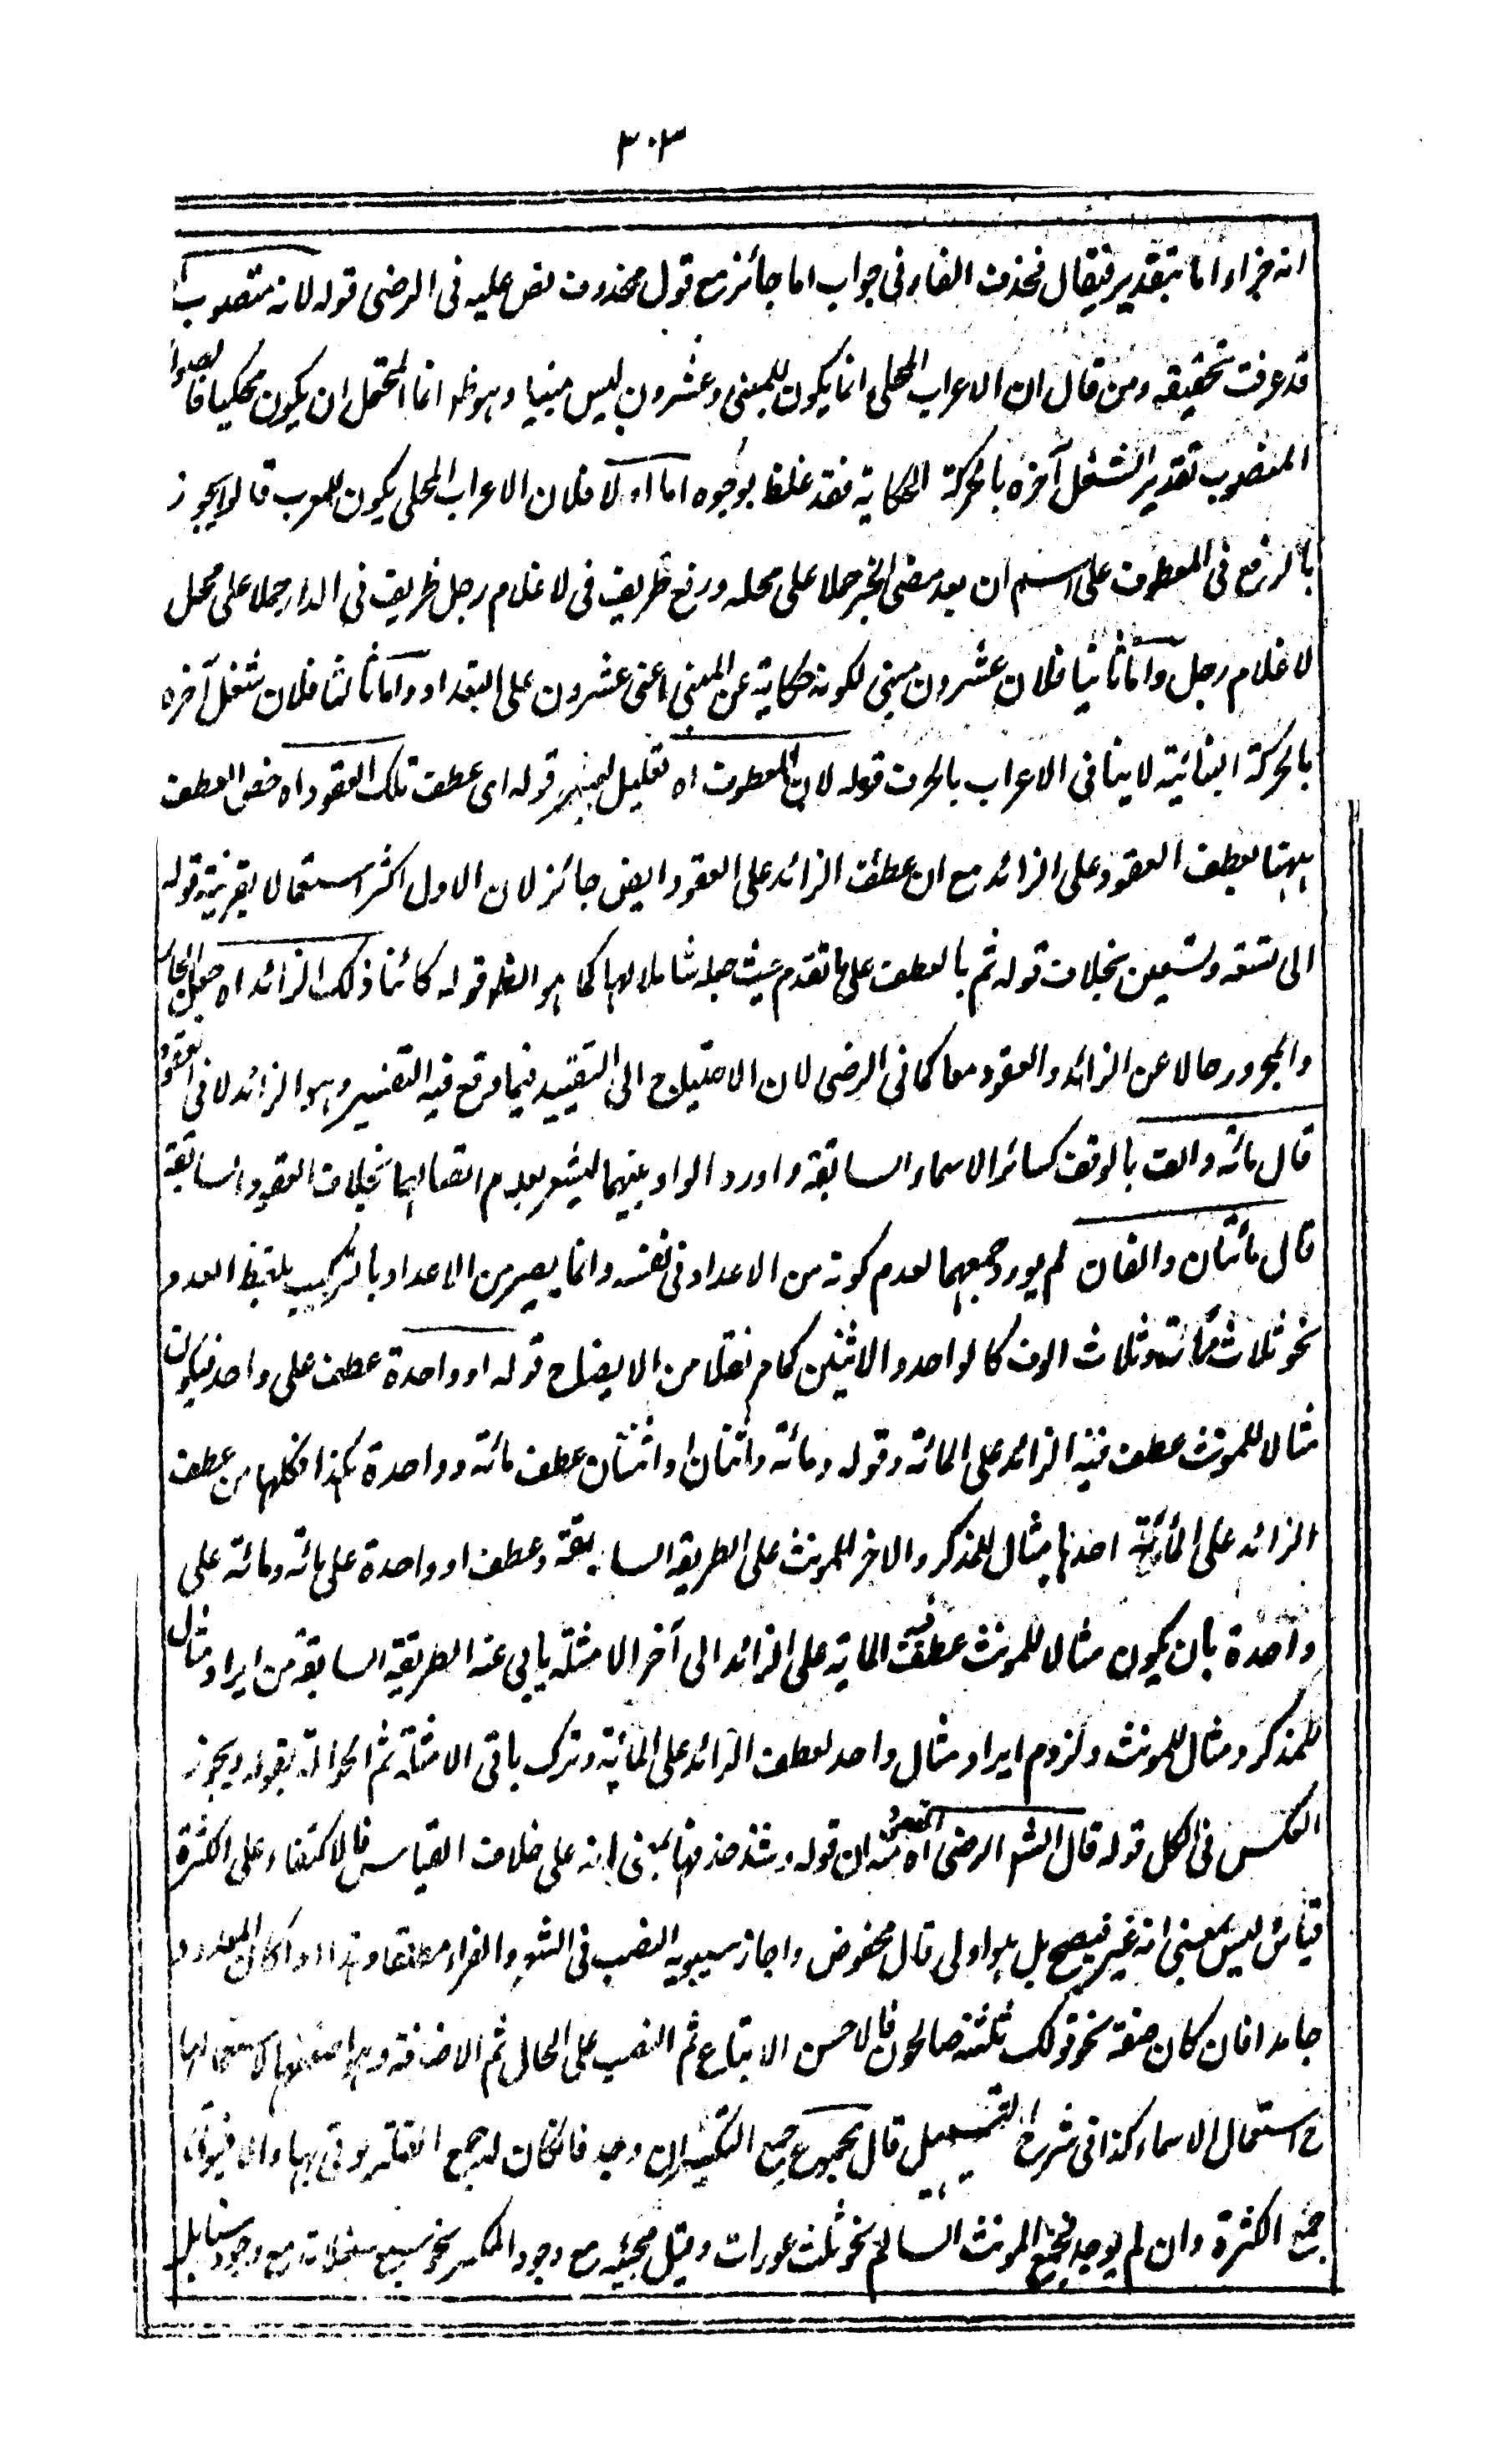 ٣٠٣
انه جزاء اما بتقدير فيقال فحذف الفاء فى جواب اما جائز مع قول محذوف نص عليه فى الرضى قوله لانه منصوب
قد عرفت تحقيقه ومن قال ان الاعراب المحلى انما يكون للمبنى وعشرون ليس مبنيا وهو ظ انما المحتمل ان يكون محكيا فالصواب
المنصوب تقدير الشغل آخره بالحركة الحكاية فقد غلط بوجوه اما اولا فلان الاعراب المحلى يكون للمعرب قالوا يجوز
بالرفع فى المعطوف على اسم ان بعد مضى الخبر حملا على محله ورفع ظريف فى لا غلام رجل ظريف فى الدار حملا على محل
لا غلام رجل واما ثانيا فلان عشرون مبنى لكونه حكاية عن المبنى اعنى عشرون على التعداد واما ثالثا فلان شغل آخره
بالحركة البنائية لا ينافى الاعراب بالحرف قوله لان المعطوف اه تعليل قوله اى عطف تلك العقود اه خص العطف
ههنا بعطف العقود على الزائد مع ان عطف الزائد على العقود ايض جائز لان الاول اكثر استعمالا بقرينة قوله
الى تسعة وتسعين بخلاف قوله ثم بالعطف على ما تقدم حيث جعله شاملا لهما كما هو الظ قوله كائنا ذلك الزائد اه جعل الجار
والمجرور حالا عن الزائد والعقود معا كما فى الرضى لان الاحتياج الى التقييد فيما وقع فيه التفسير وهو الزائد لا فى العقود
قال مائة والف بالوقف كسائر الاسماء السابقة واورد الواو بينهما ليشعر بعدم اتصالهما بخلاف العقود السابقة
قال مائتان والفان لم يورد جمعهما لعدم كونه من الاعداد فى نفسه وانما يصير من الاعداد بالتركيب بلفظ العدد
نحو ثلاث مائة وثلاث الوف كالواحد والاثنين كما مر نقلا من الايضاح قوله او واحدة عطف على واحد فيكون
مثالا للمونث عطف فيه الزائد على المائة وقوله ومائة واثنان او اثنتان عطف مائة وواحدة هكذا فكلها من عطف
الزائد على المائة احدها مثال للمذكر والاخر للمونث على الطريقة السابقة وعطف او واحدة على مائة ومائة على
واحدة بان يكون مثالا للمونث عطف فيه المائة على الزائد الى آخر الامثلة يابى عنه الطريقة السابقة من ايراد مثال
للمذكر ومثال للمونث ولزوم ايراد مثال واحد لعطف الزائد على المائة وترك باقى الامثلة ثم الحوالة بقوله ويجوز
العكس فى الكل قوله قال الش الرضى اه المقصود منه ان قوله وشذ حذفها بمعنى انه على خلاف القياس فالاكتفاء على الكثرة
قياس ليس بمعنى انه غير فصيح بل هو اولى قال مخفوض واجاز سيبويه النصب فى الشعر والفراء مطلقا وهذا اذا كان المعدود
جامدا فان كان صفة نحو قولك ثلثة صالحون فالاحسن الاتباع ثم النصب على الحال ثم الاضافة وهو اضعفها لاستعمالها
ح استعمال الاسماء كذا فى شرح التسهيل قال مجموع جمع التكسير ان وجد فان كان له جمع القلة يوتى بها والا فيوتى
جمع الكثرة وان لم يوجد فجمع المونث السالم نحو ثلث عورات وقيل مجيئه مع وجود المكسر نحو سبع سنبلات مع وجود سنابل